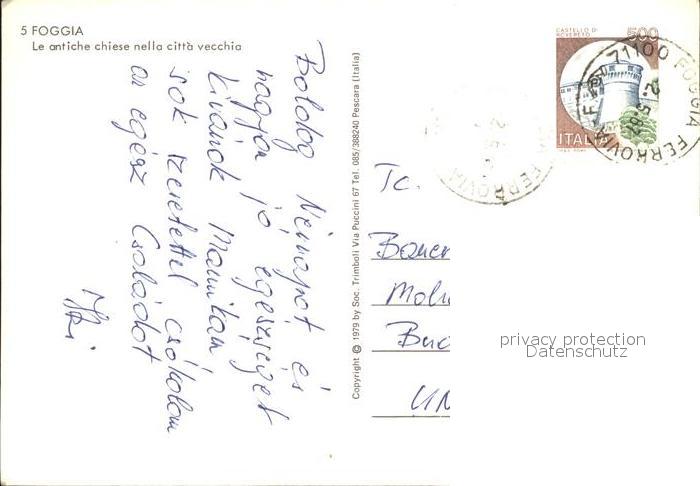 5 FOGGIA
Le antiche chiese nella città vecchia
Boldog Névnapot és
nagyon jó egészséget
kivánok Mamikám,
sok szeretettel csókolom
az egész Családot
Copyright © 1979 by Soc. Trimboli Via Puccini 67 Tel. 085/388240 Pescara (Italia)
CASTELLO DI
ROVERETO
500
ITALIA
71100 FOGGIA
FERROVIA
2.5.87
FERROVIA
Tc.
privacy protection
Datenschutz